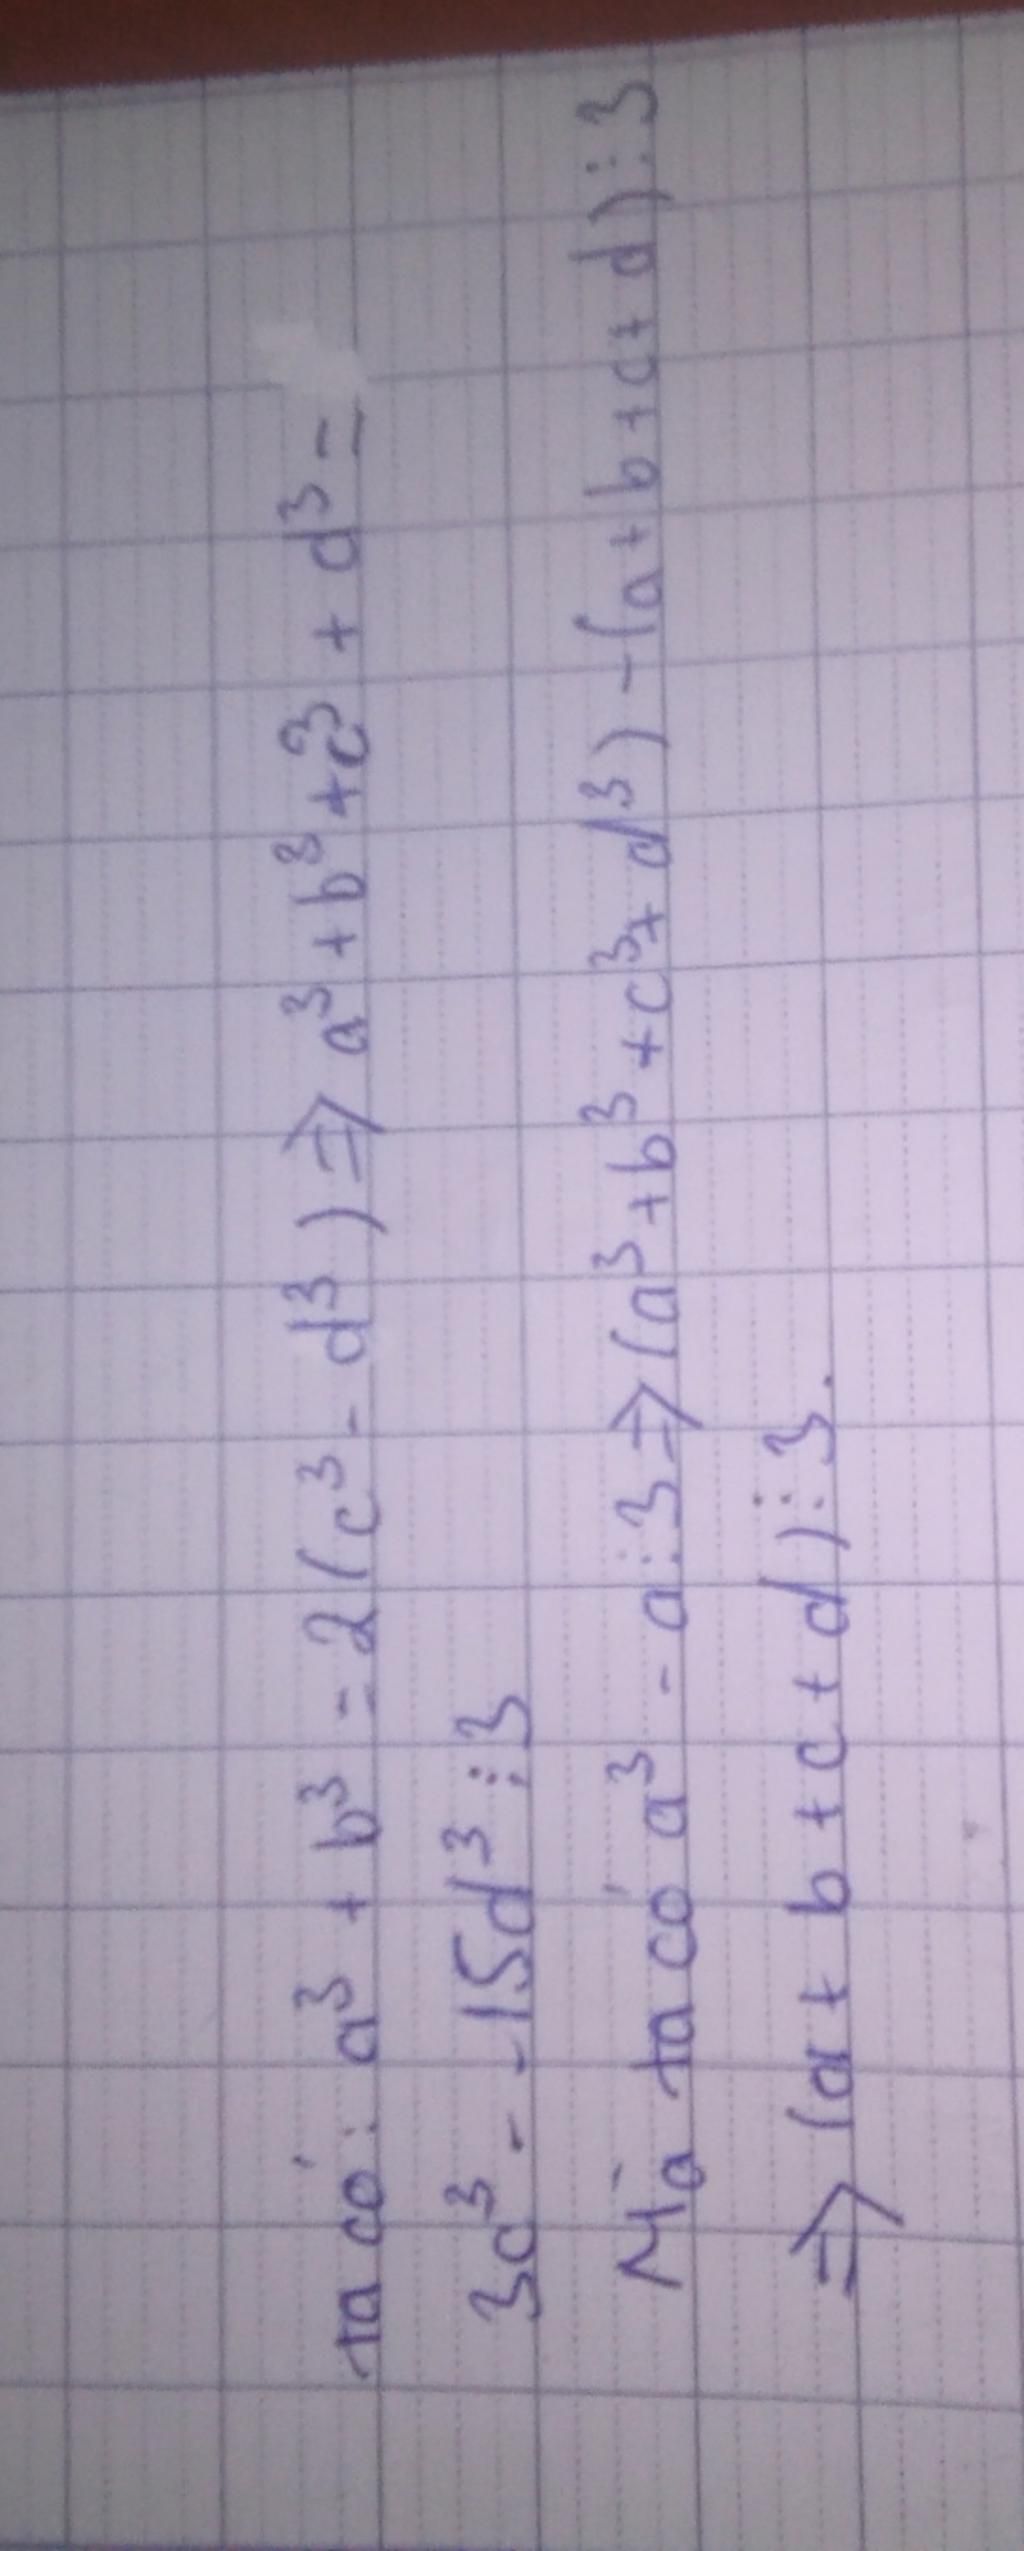 ta có: a³ + b³ = 2(c³ - d³) ⇒ a³ + b³ + c³ + d³ =
3c³ - -15d³ ⋮ 3
Mà ta có a³ - a ⋮ 3 ⇒ (a³ + b³ + c³ + d³) - (a + b + c + d) ⋮ 3
⇒ (a + b + c + d) ⋮ 3.